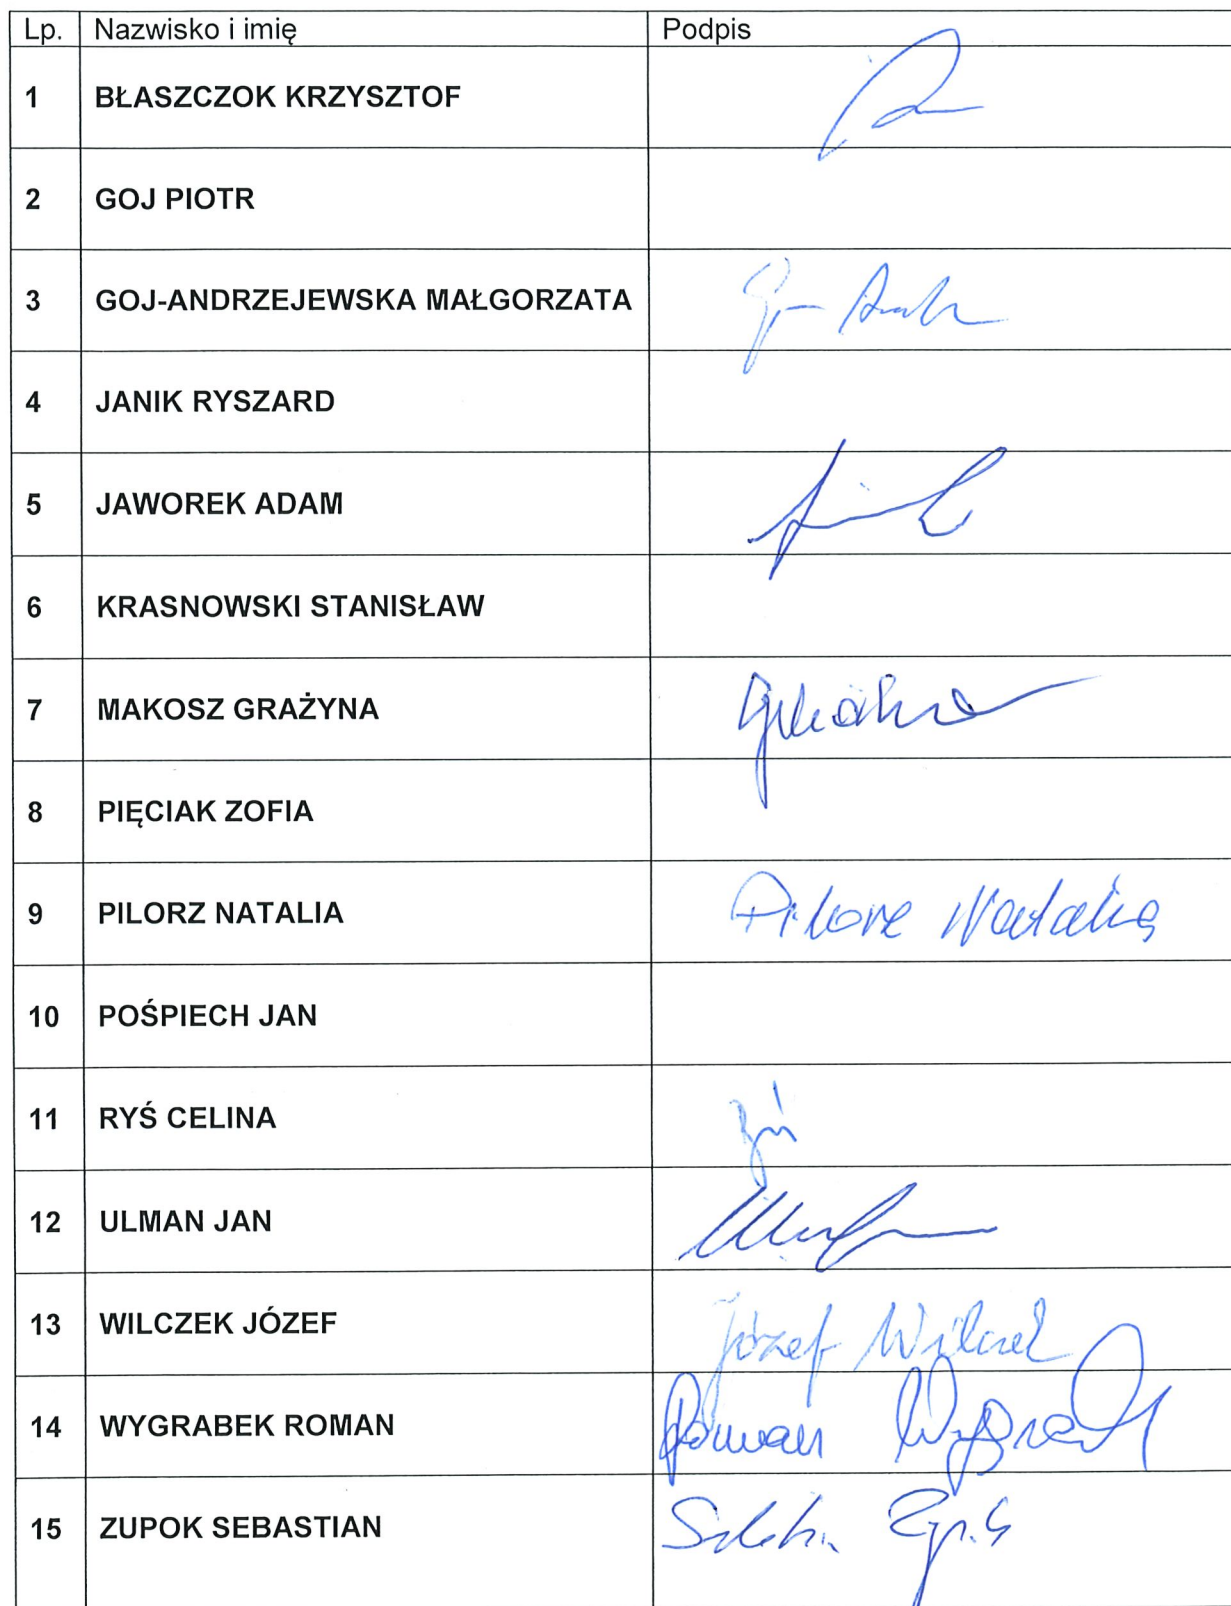 Lp. Nazwisko i imię Podpis
1 BŁASZCZOK KRZYSZTOF
2 GOJ PIOTR
3 GOJ-ANDRZEJEWSKA MAŁGORZATA
4 JANIK RYSZARD
5 JAWOREK ADAM
6 KRASNOWSKI STANISŁAW
7 MAKOSZ GRAŻYNA
8 PIĘCIAK ZOFIA
9 PILORZ NATALIA Pilorz Natalia
10 POŚPIECH JAN
11 RYŚ CELINA
12 ULMAN JAN
13 WILCZEK JÓZEF Józef Wilczek
14 WYGRABEK ROMAN Roman
15 ZUPOK SEBASTIAN